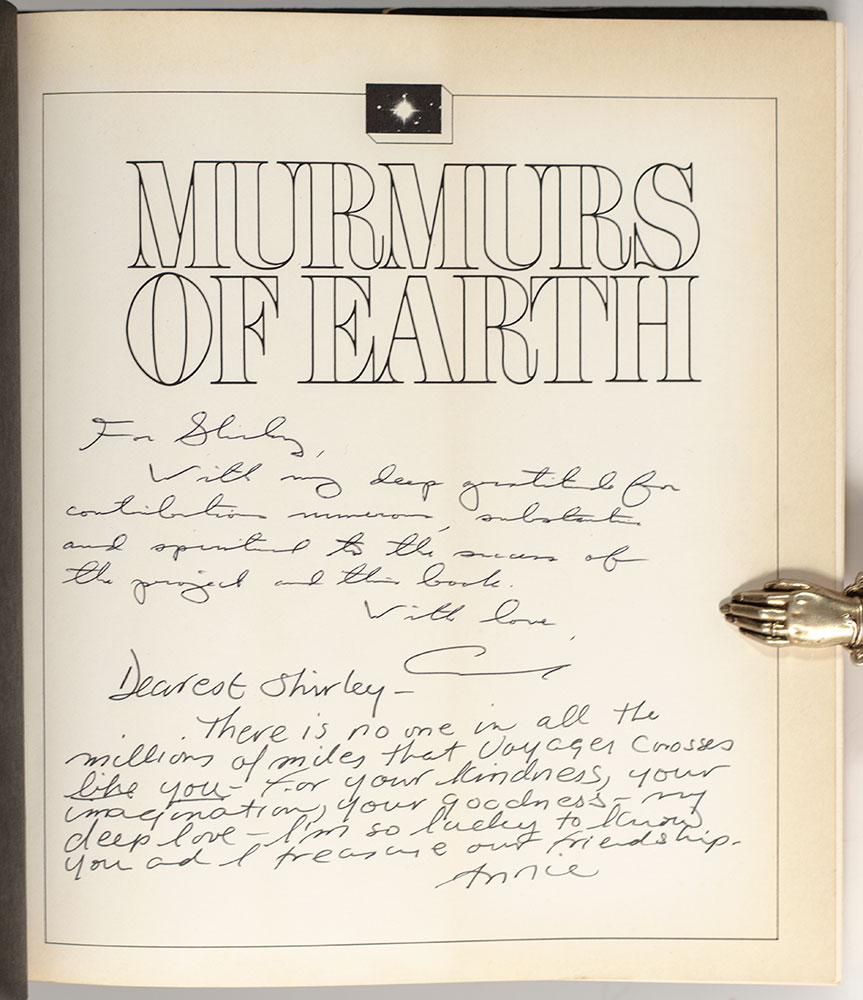 MURMURS
OF EARTH
For Shirley,
With my deep gratitude for
contributions numerous, substantive
and spiritual to the success of
the project and this book.
With love,
Dearest Shirley—
There is no one in all the
millions of miles that Voyager crosses
like you— For your kindness, your
imagination, your goodness— my
deep love— I'm so lucky to know
you and I treasure our friendship.
Annie